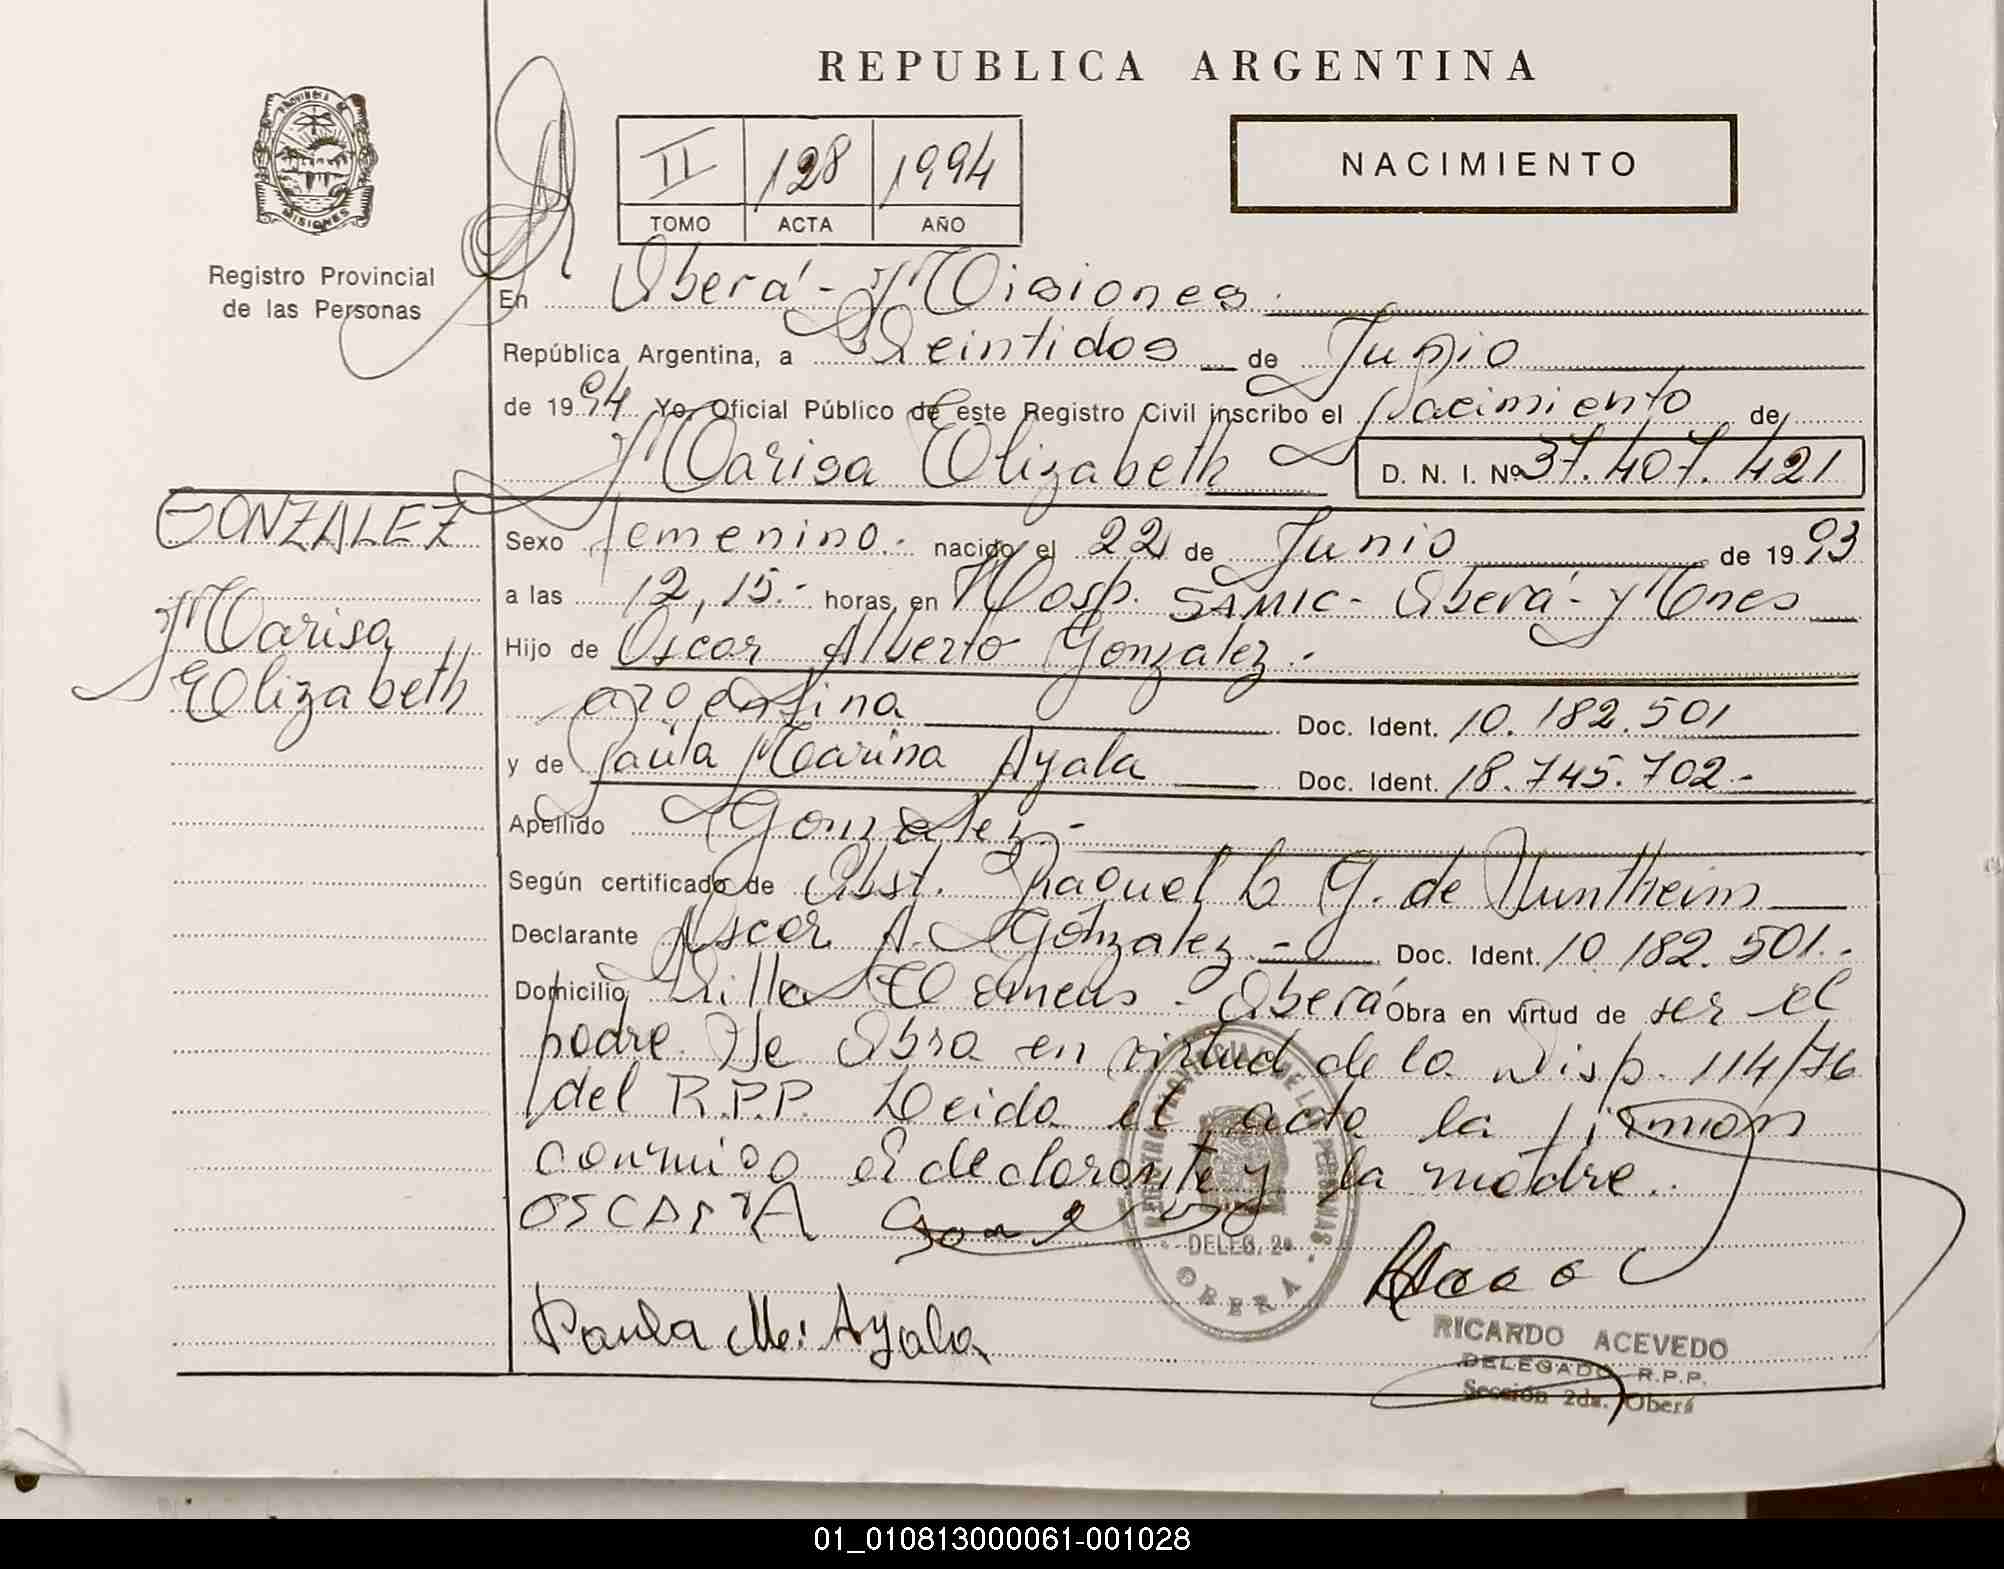 REPUBLICA ARGENTINA
PROVINCIA DE
MISIONES
Registro Provincial
de las Personas
II 128 1994
TOMO ACTA AÑO
NACIMIENTO
En Oberá - Misiones.
República Argentina, a Veintidos de Junio
de 1994 Yo, Oficial Público de este Registro Civil inscribo el Nacimiento de
Marisa Elizabeth D. N. I. Nº 37.407.421
GONZALEZ
Marisa
Elizabeth
Sexo femenino.- nacido el 22 de Junio de 1993
a las 12,15.- horas, en Hosp. SAMIC - Oberá - Mnes
Hijo de Oscar Alberto Gonzalez.-
argentina Doc. Ident. 10.182.501
y de Paula Marina Ayala Doc. Ident. 18.745.702-
Apellido Gonzalez-
Según certificado de Obst. Raquel L G. de Huntheim
Declarante Oscar A. Gonzalez.- Doc. Ident. 10.182.501.-
Domicilio Villa - Oberá Obra en virtud de ser el
padre. Se Obra en virtud de la Disp. 114/76
del R.P.P. Leida el acta la firman
conmigo el declarante y la madre.
OSCAR A
Paula M. Ayala
REGISTRO PROVINCIAL DE LAS PERSONAS
DELEG. 2a
OBERA
RICARDO ACEVEDO
DELEGADO R.P.P.
Sección 2da. Oberá
01_010813000061-001028